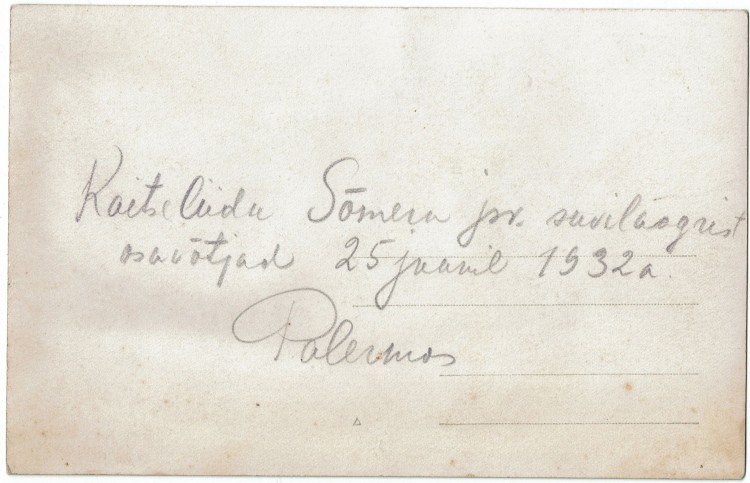 Kaitseliidu Sõmera jsv. suvilaagrist
osavõtjad 25 juunil 1932a.
Palermos